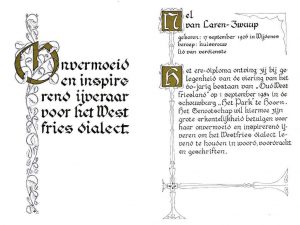 Onvermoeid
en inspire
rend ijveraar
voor het West
fries dialect.
Nel
van Laren-Zwuup
geboren: 17 september 1906 in Wijdenes
beroep: huisvrouw
lid van verdienste
Het ere-diploma ontving zij bij ge
legenheid van de viering van het
60-jarig bestaan van „Oud West
friesland" op 1 september 1984 in de
schouwburg „Het Park te Hoorn.
Het Genootschap wil hiermee zijn
grote erkentelijkheid betuigen voor
haar onvermoeid en inspirerend ij
veren om het Westfries dialect le
vend te houden in woord, voordracht
en geschriften.